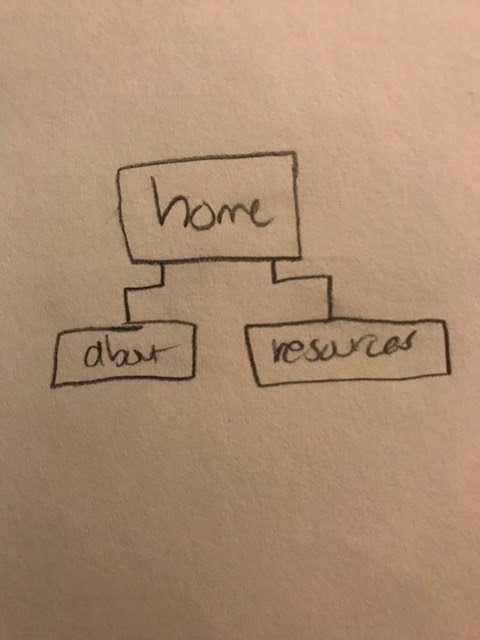 home
about
resources